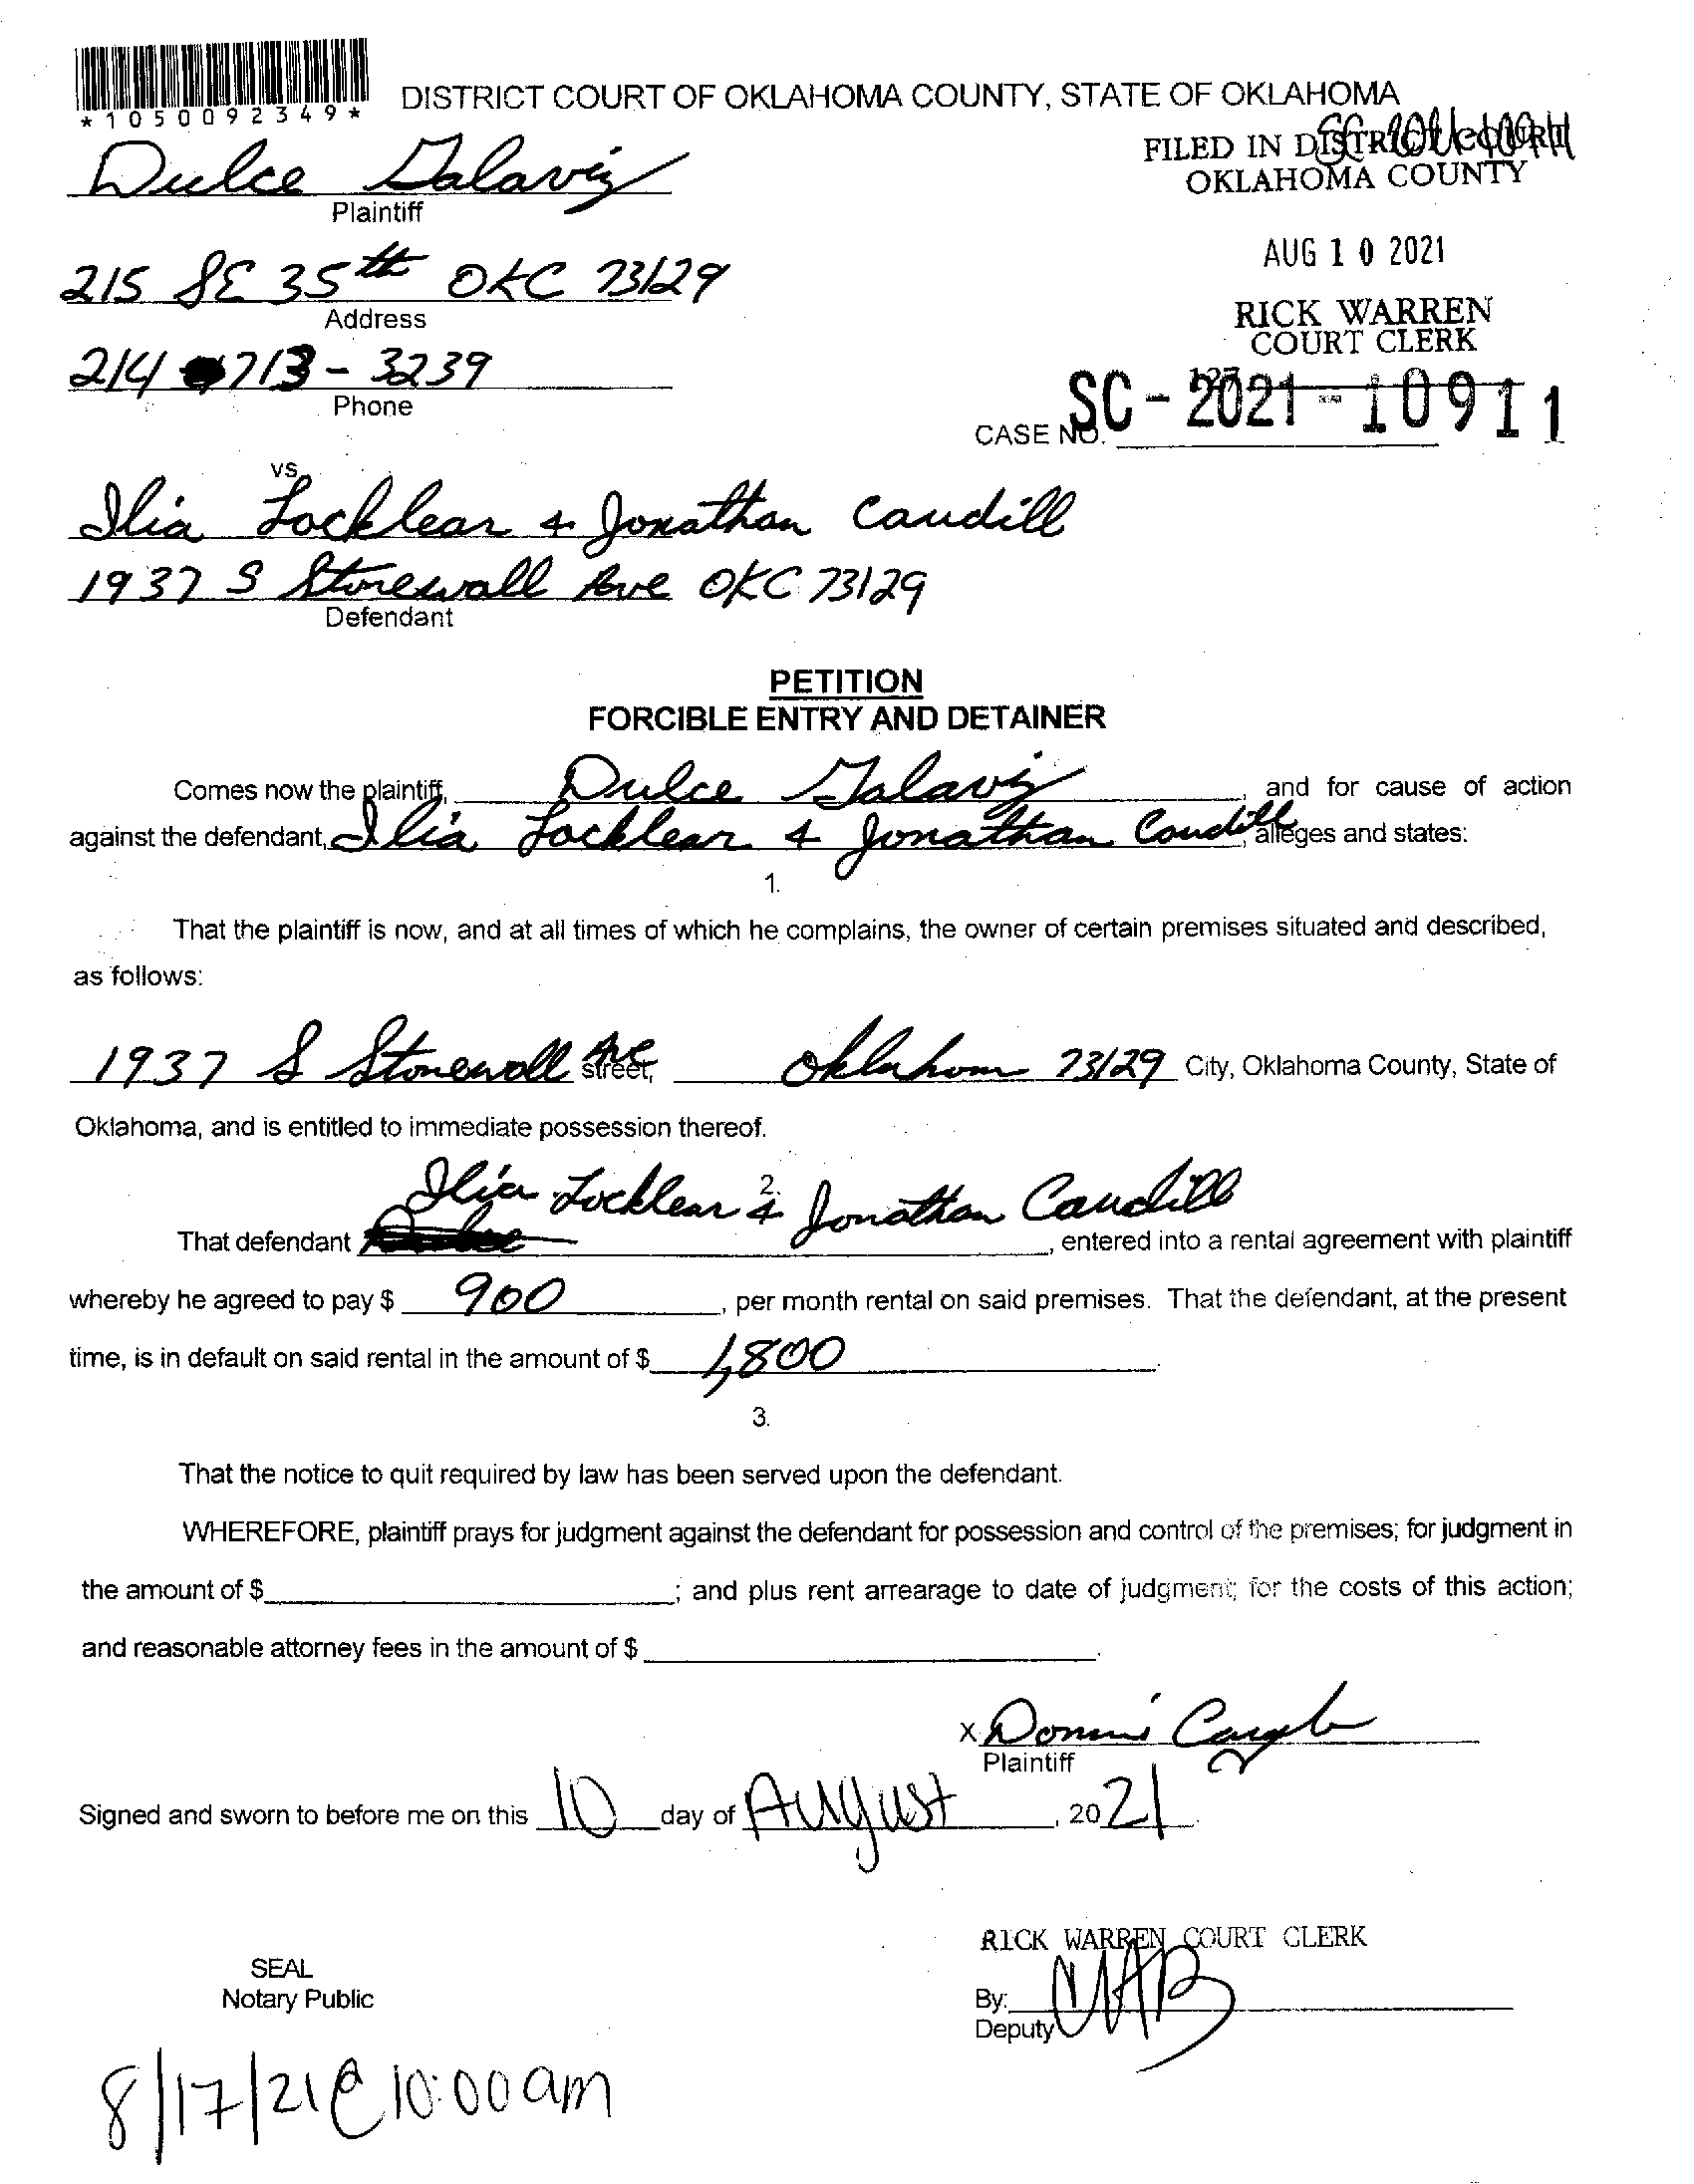 *1050092349*
DISTRICT COURT OF OKLAHOMA COUNTY, STATE OF OKLAHOMA
FILED IN DISTRICT COURT
OKLAHOMA COUNTY
Dulce Galaviz
Plaintiff
AUG 10 2021
215 SE 35th OKC 73129
Address
RICK WARREN
COURT CLERK
214 713-3239
Phone
CASE NO. SC-2021-10911
vs.
Ilia Locklear & Jonathan Caudill
1937 S Stonewall Ave OKC 73129
Defendant
PETITION
FORCIBLE ENTRY AND DETAINER
Comes now the plaintiff, Dulce Galaviz, and for cause of action
against the defendant, Ilia Locklear & Jonathan Caudill, alleges and states:
1.
That the plaintiff is now, and at all times of which he complains, the owner of certain premises situated and described,
as follows:
1937 S Stonewall Ave street, Oklahom 73129 City, Oklahoma County, State of
Oklahoma, and is entitled to immediate possession thereof.
2.
Ilia Locklear & Jonathan Caudill
That defendant , entered into a rental agreement with plaintiff
whereby he agreed to pay $ 900, per month rental on said premises. That the defendant, at the present
time, is in default on said rental in the amount of $ 1,800.
3.
That the notice to quit required by law has been served upon the defendant.
WHEREFORE, plaintiff prays for judgment against the defendant for possession and control of the premises; for judgment in
the amount of $ ; and plus rent arrearage to date of judgment; for the costs of this action;
and reasonable attorney fees in the amount of $ .
X
Plaintiff
Signed and sworn to before me on this 10 day of August, 2021.
RICK WARREN COURT CLERK
SEAL
Notary Public
By: MAB
Deputy
8/17/21 @ 10:00am